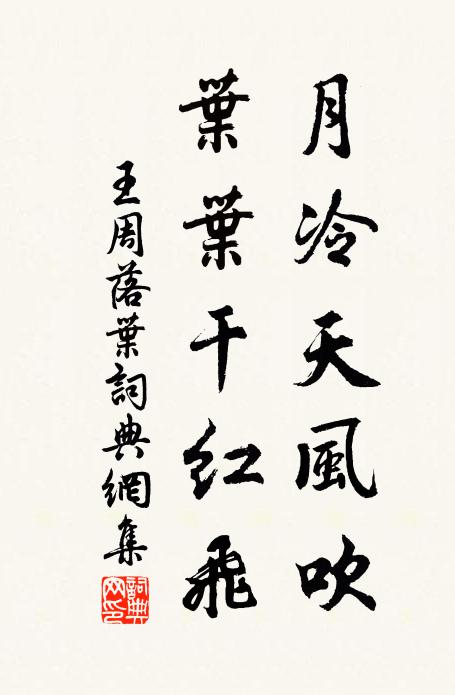 月冷天風吹
葉葉干紅飛
王周落葉詞典網集
詞典網印